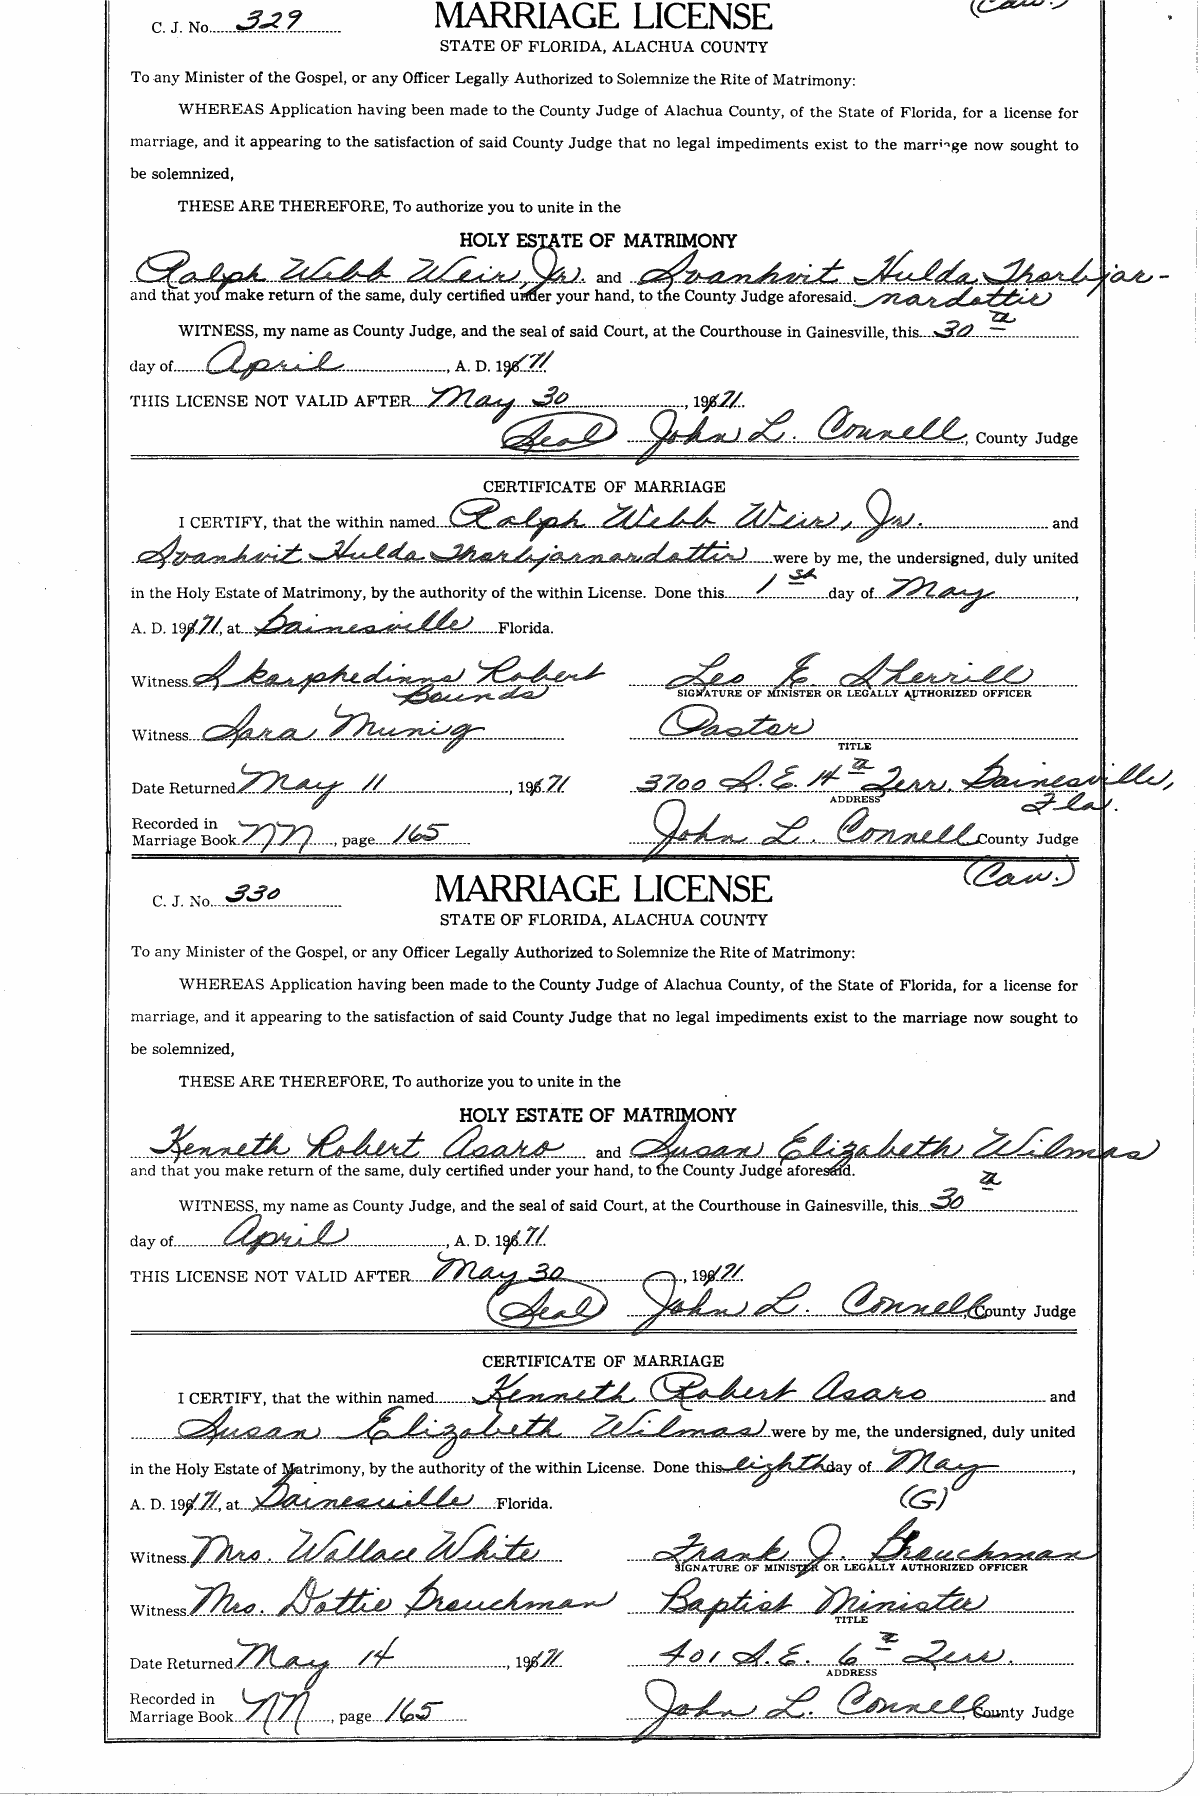 (Caw.)
C. J. No. 329
MARRIAGE LICENSE
STATE OF FLORIDA, ALACHUA COUNTY
To any Minister of the Gospel, or any Officer Legally Authorized to Solemnize the Rite of Matrimony:
WHEREAS Application having been made to the County Judge of Alachua County, of the State of Florida, for a license for
marriage, and it appearing to the satisfaction of said County Judge that no legal impediments exist to the marriage now sought to
be solemnized,
THESE ARE THEREFORE, To authorize you to unite in the
HOLY ESTATE OF MATRIMONY
Ralph Webb Weir, Jr. and Svanhvit Hulda Thorbjar-
and that you make return of the same, duly certified under your hand, to the County Judge aforesaid. nardottir
WITNESS, my name as County Judge, and the seal of said Court, at the Courthouse in Gainesville, this 30th
day of April, A. D. 1971
THIS LICENSE NOT VALID AFTER May 30, 1971.
(Seal) John L. Connell, County Judge
CERTIFICATE OF MARRIAGE
I CERTIFY, that the within named Ralph Webb Weir, Jr. and
Svanhvit Hulda Thorbjarnardottir were by me, the undersigned, duly united
in the Holy Estate of Matrimony, by the authority of the within License. Done this 1st day of May,
A. D. 1971, at Gainesville Florida.
Witness Skarphedinns Robert Leo E. Sherrill
Bounds SIGNATURE OF MINISTER OR LEGALLY AUTHORIZED OFFICER
Witness Sara Munig Pastor
TITLE
Date Returned May 11, 1971 3700 S.E. 14th Terr. Gainesville,
ADDRESS Fla.
Recorded in
Marriage Book NN, page 165 John L. Connell County Judge
(Caw.)
C. J. No. 330
MARRIAGE LICENSE
STATE OF FLORIDA, ALACHUA COUNTY
To any Minister of the Gospel, or any Officer Legally Authorized to Solemnize the Rite of Matrimony:
WHEREAS Application having been made to the County Judge of Alachua County, of the State of Florida, for a license for
marriage, and it appearing to the satisfaction of said County Judge that no legal impediments exist to the marriage now sought to
be solemnized,
THESE ARE THEREFORE, To authorize you to unite in the
HOLY ESTATE OF MATRIMONY
Kenneth Robert Asaro and Susan Elizabeth Wilmas
and that you make return of the same, duly certified under your hand, to the County Judge aforesaid.
WITNESS, my name as County Judge, and the seal of said Court, at the Courthouse in Gainesville, this 30th
day of April, A. D. 1971.
THIS LICENSE NOT VALID AFTER May 30, 1971.
(Seal) John L. Connell, County Judge
CERTIFICATE OF MARRIAGE
I CERTIFY, that the within named Kenneth Robert Asaro and
Susan Elizabeth Wilmas were by me, the undersigned, duly united
in the Holy Estate of Matrimony, by the authority of the within License. Done this eighth day of May,
A. D. 1971, at Gainesville Florida. (G)
Witness Mrs. Wallace White Frank J. Grouchman
SIGNATURE OF MINISTER OR LEGALLY AUTHORIZED OFFICER
Witness Mrs. Dottie Grouchman Baptist Minister
TITLE
Date Returned May 14, 1971 401 S.E. 6th Terr.
ADDRESS
Recorded in
Marriage Book NN, page 165 John L. Connell, County Judge